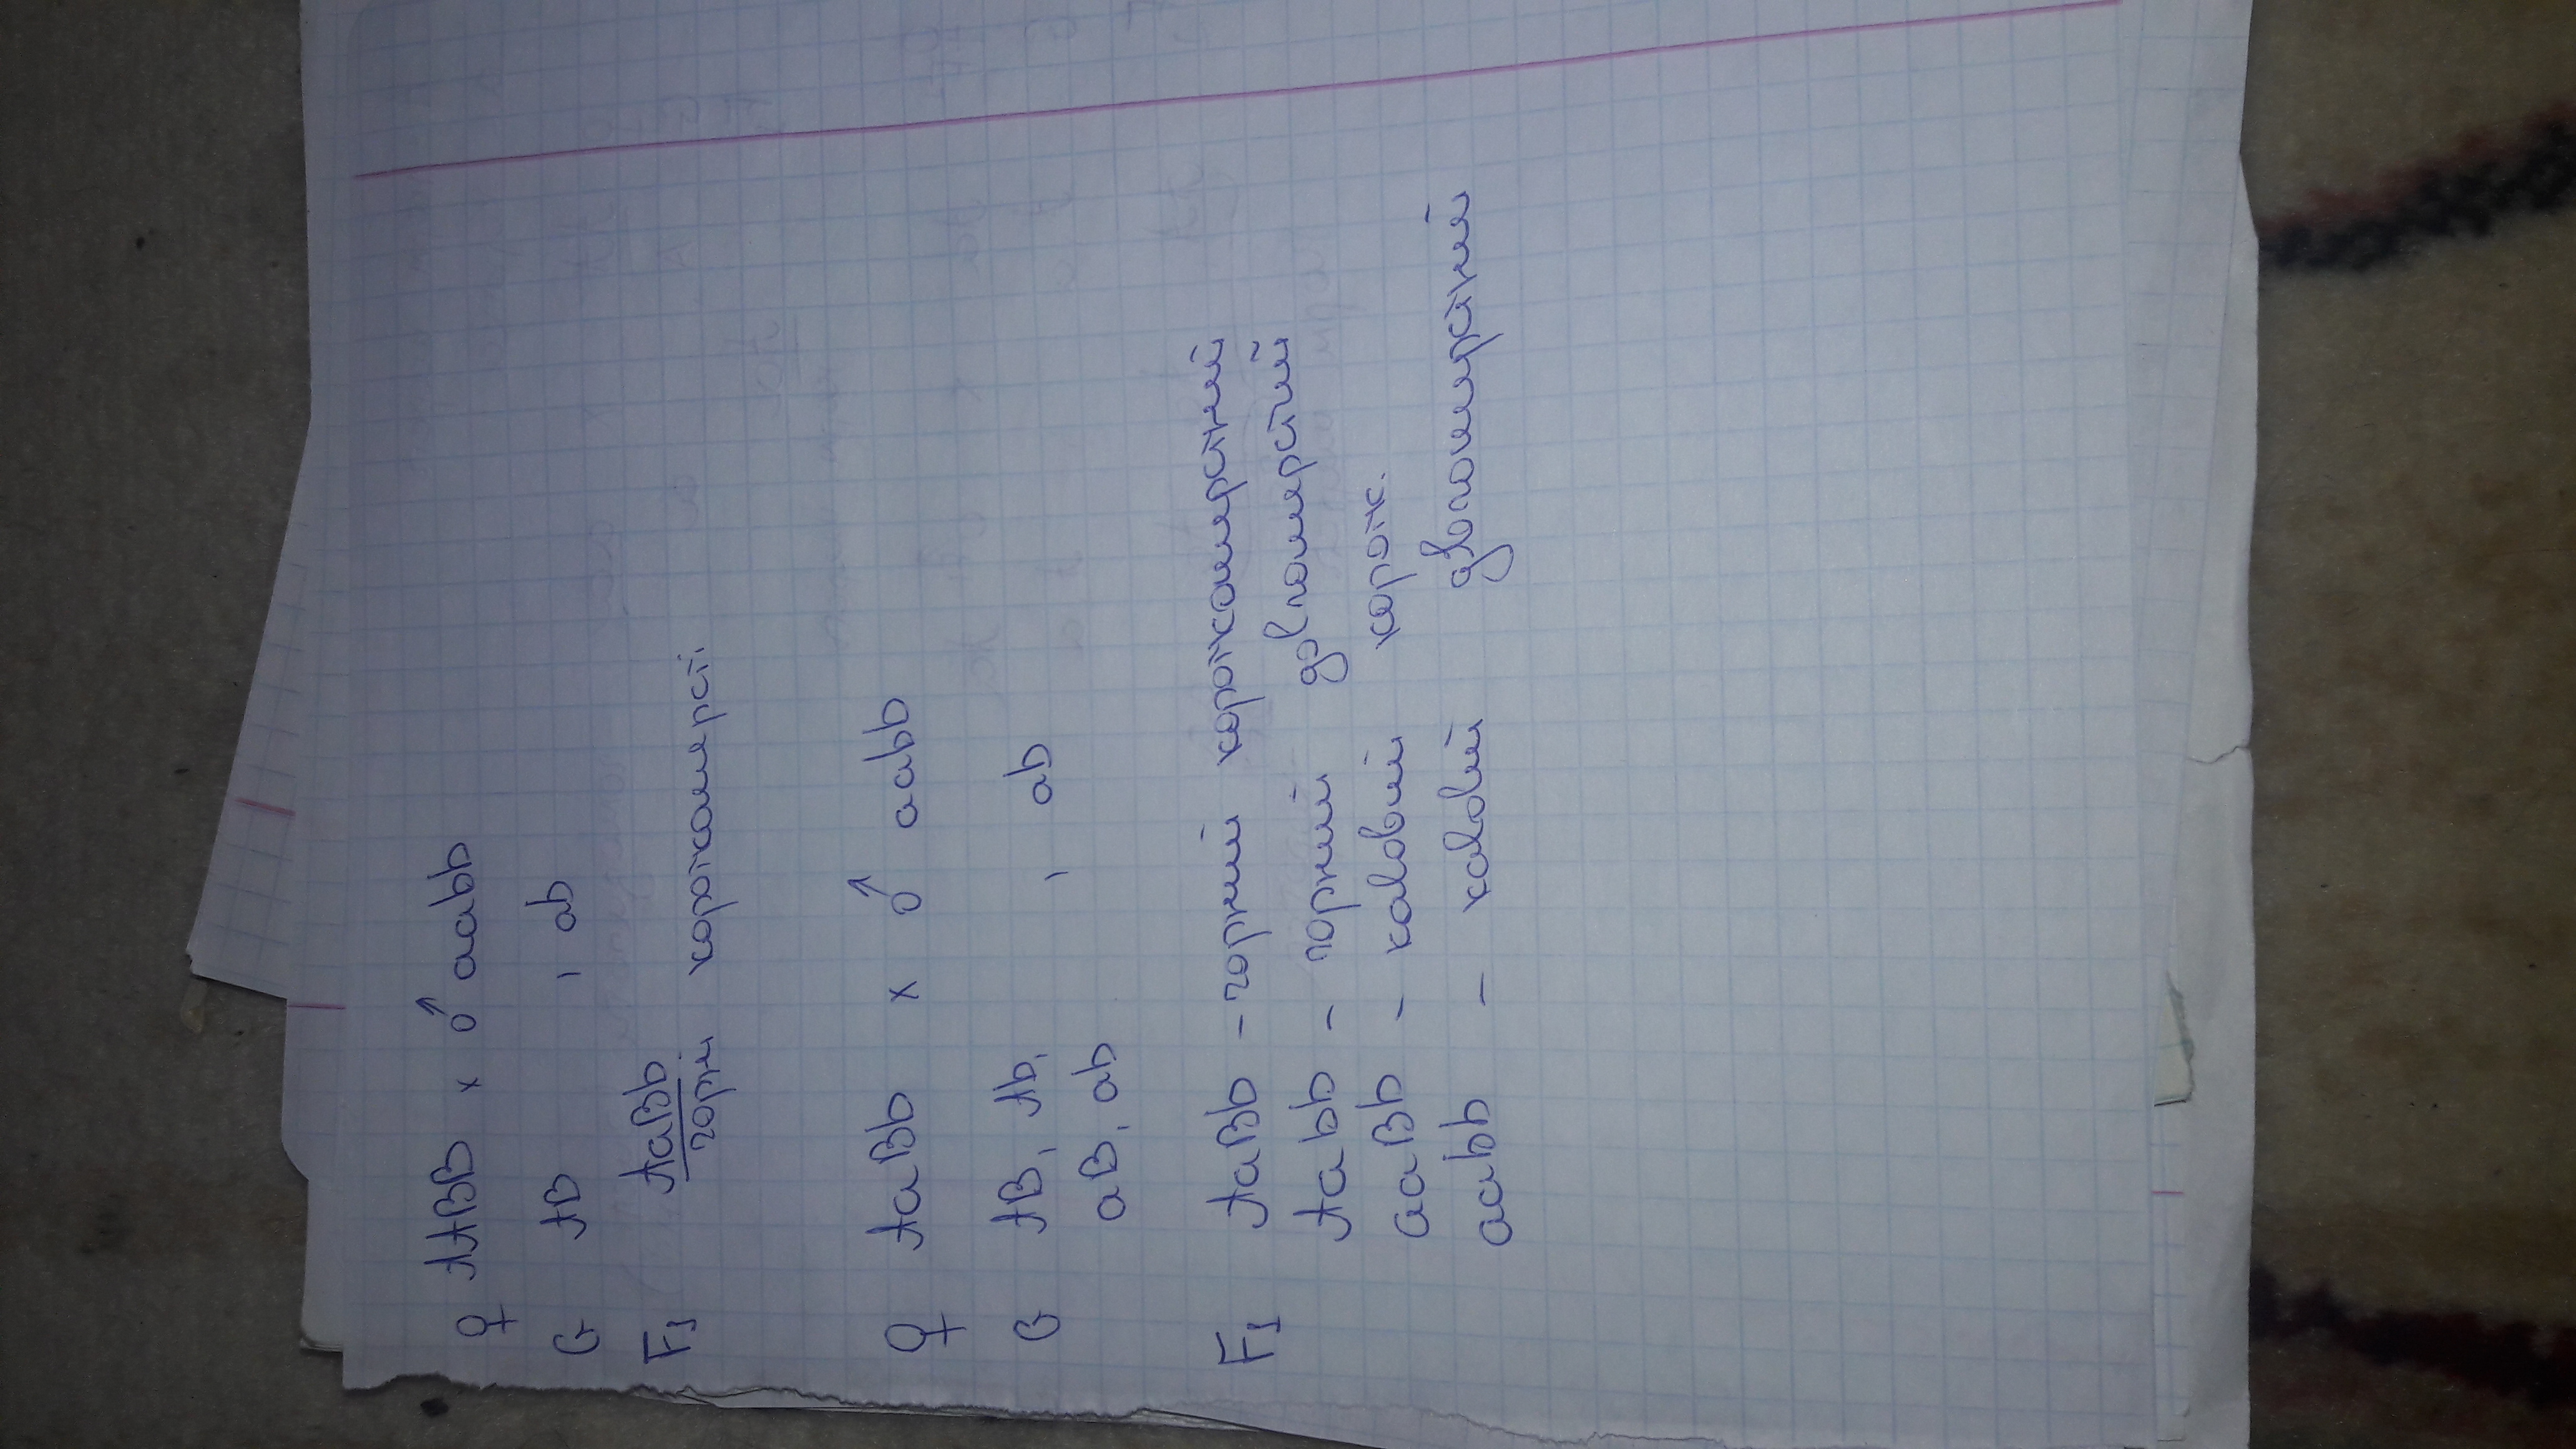 ♀ AABB × ♂ aabb
G AB , ab
F₁ AaBb
чорні короткошерсті.
♀ AaBb × ♂ aabb
G AB, Ab, , ab
aB, ab
F₁ AaBb - чорний короткошерстний
Aabb - чорний довгошерстий
aaBb - кавовий коротк.
aabb - двгошерстний